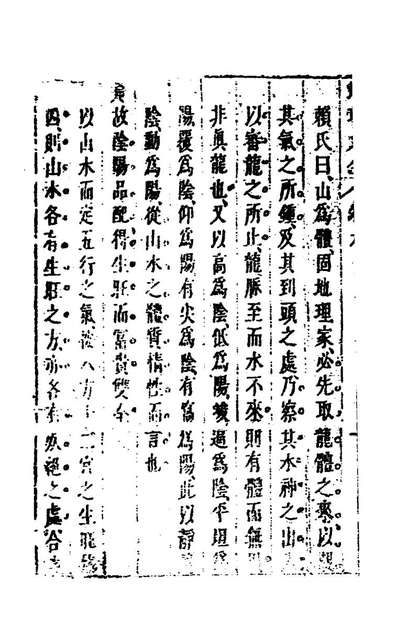 賴氏曰山爲體固地理家必先取龍體之來以
其氣之所鍾及其到頭之處乃察其水神之出
以審龍之所止龍脈至而水不來則有體而無
非眞龍也又以高爲陰低爲陽峻爲陰平坦爲
陽覆爲陰仰爲陽有尖爲陰有窩爲陽此以靜
陰動爲陽從山水之體質情性而言也
故陰陽品配得生旺而富貴雙全
以山水而定五行之氣八方十二宮之生旺
四則山水各有生旺之方亦各有之處合